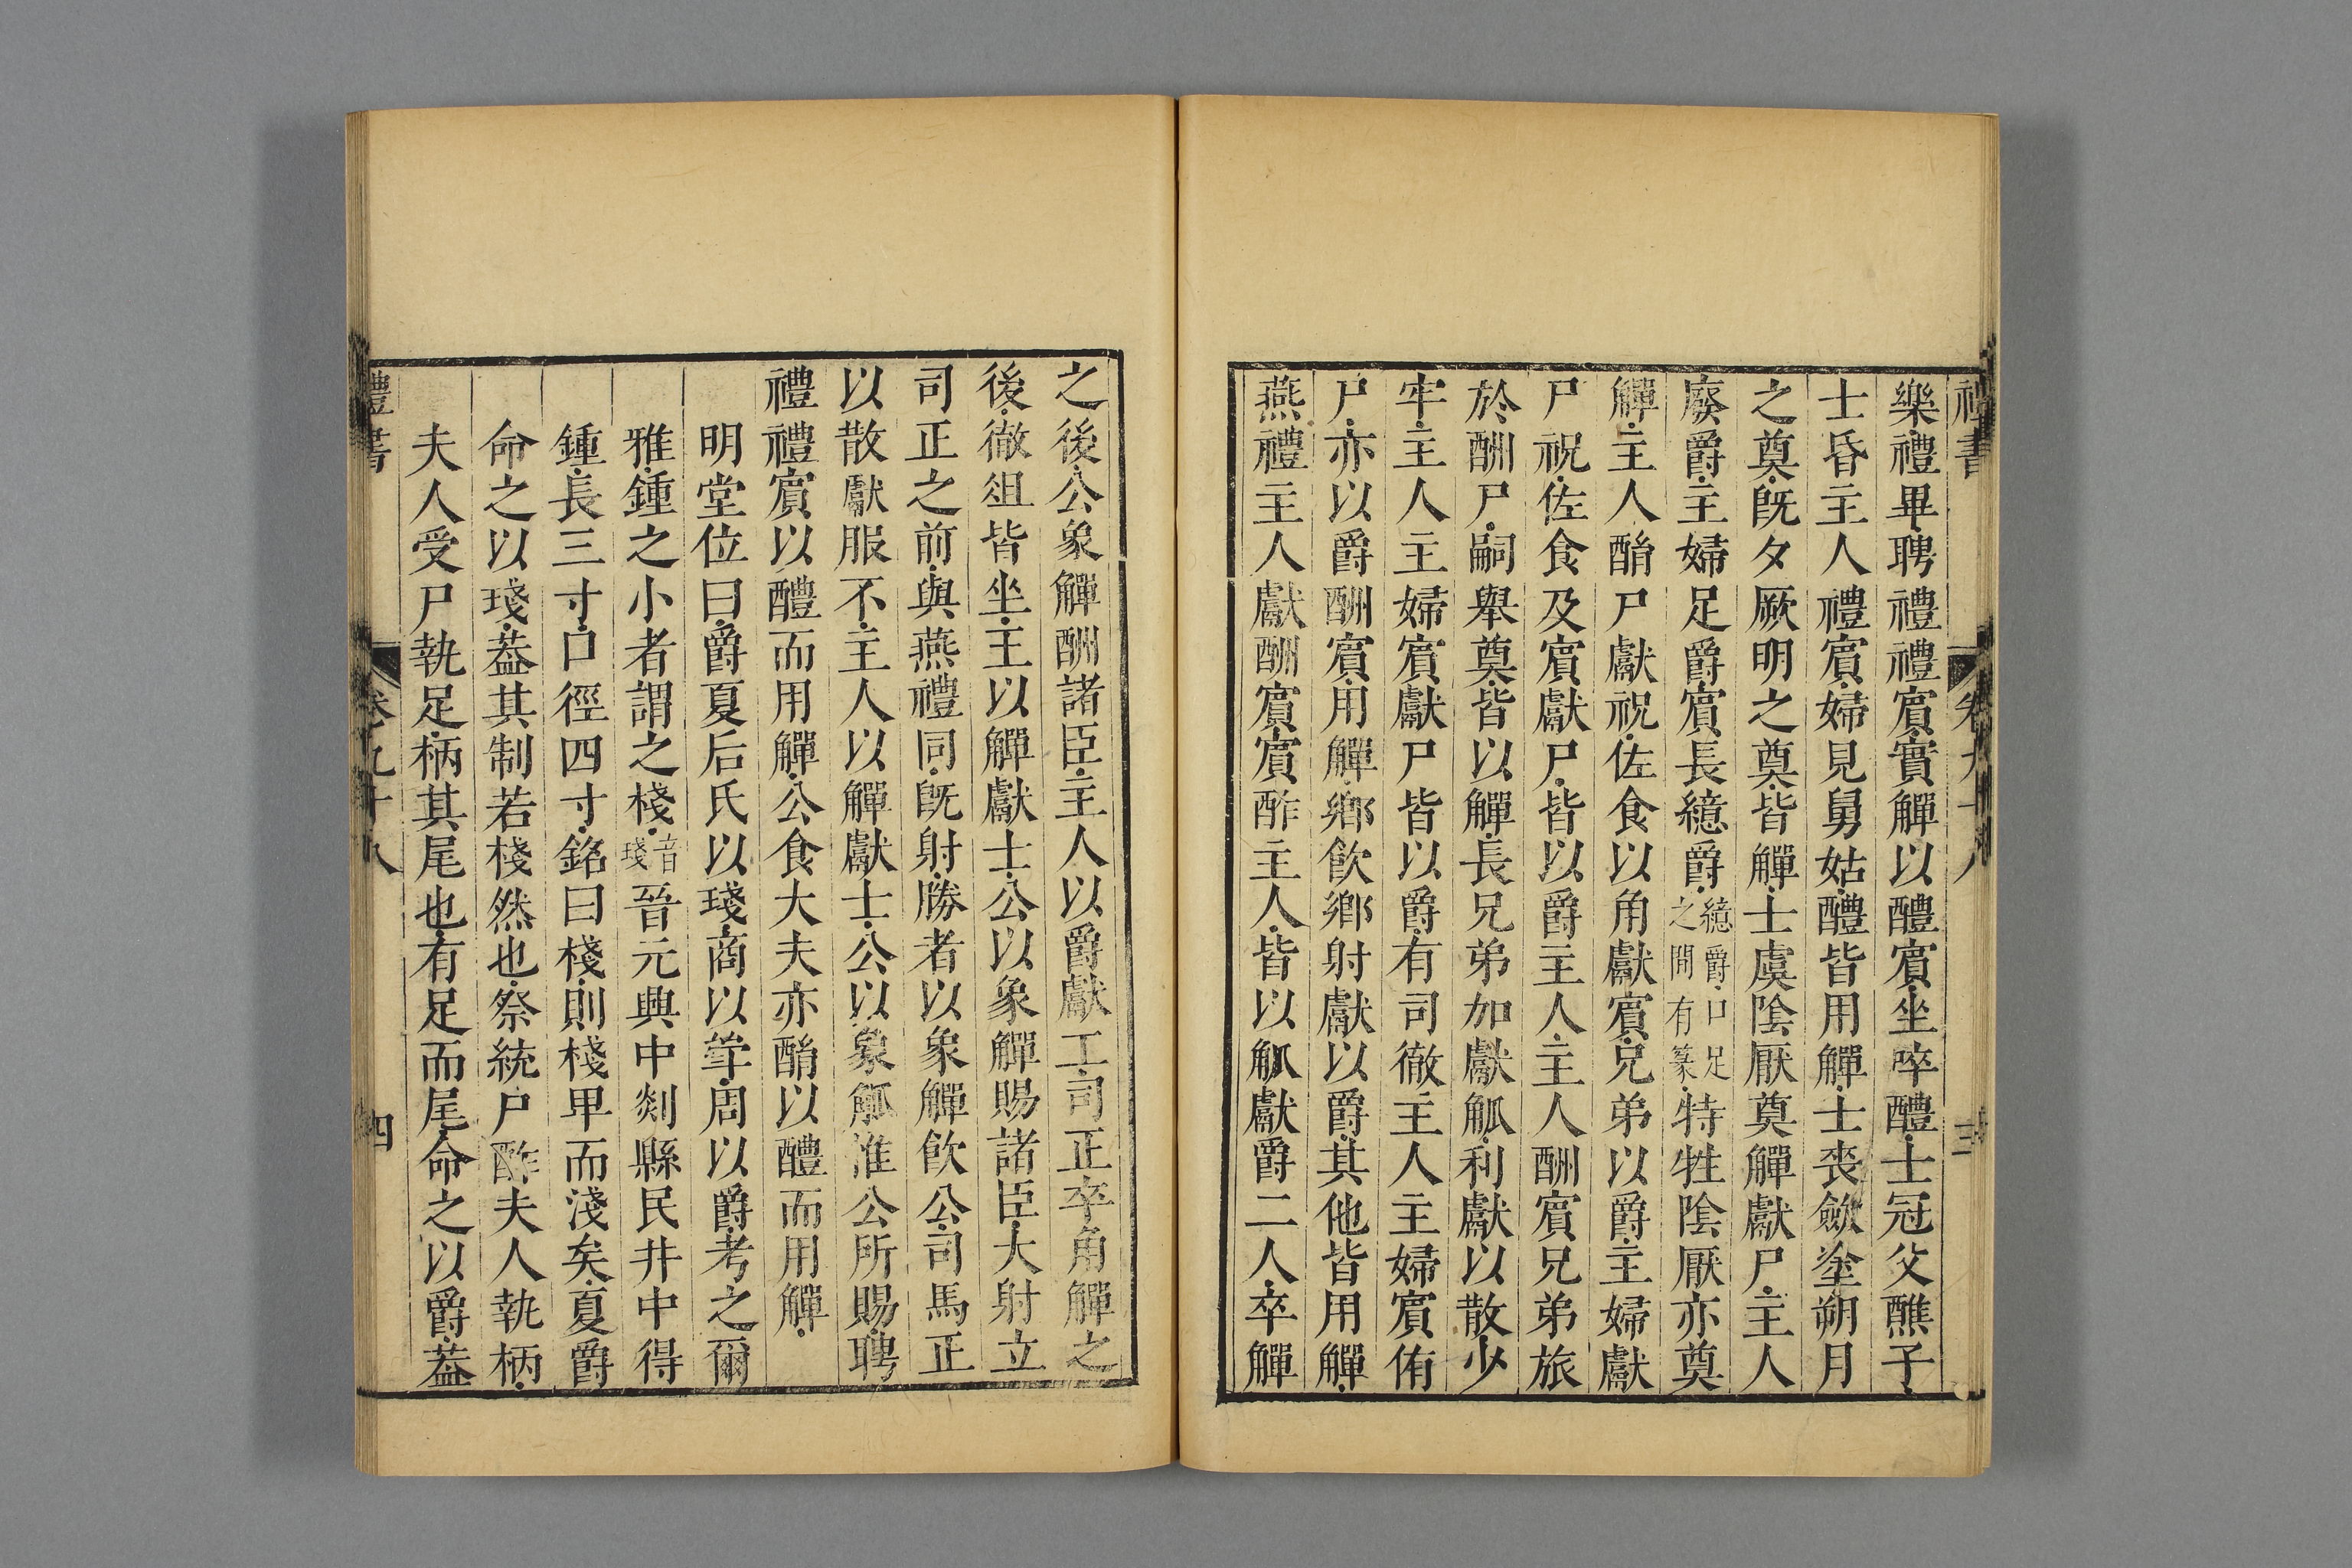 樂禮畢聘禮禮賓實觶以醴賓坐啐醴士冠父醮子
士昏主人禮賓婦見舅姑醴皆用觶士喪斂塗朔月
之奠旣夕厥明之奠皆觶士虞陰厭奠觶獻尸主人
廢爵主婦足爵賓長繶爵繶爵口足之間有篆特牲陰厭亦奠
觶主人酳尸獻祝佐食以角獻賓兄弟以爵主婦獻
尸祝佐食及賓獻尸皆以爵主人主人酬賓兄弟旅
於酬尸嗣舉奠皆以觶長兄弟加獻觚利獻以散少
牢主人主婦賓獻尸皆以爵有司徹主人主婦賓侑
尸亦以爵酬賓用觶鄉飲鄉射獻以爵其他皆用觶
燕禮主人獻酬賓賓酢主人皆以觚獻爵二人卒觶
之後公象觶酬諸臣主人以爵獻工司正卒角觶之
後徹俎皆坐主以觶獻士公以象觶賜諸臣大射立
司正之前與燕禮同旣射勝者以象觶飲公司馬正
以散獻服不主人以觶獻士公以象觚惟公所賜聘
禮禮賓以醴而用觶公食大夫亦酳以醴而用觶
明堂位曰爵夏后氏以琖商以斝周以爵考之爾
雅鍾之小者謂之棧音琖晉元興中剡縣民井中得
鍾長三寸口徑四寸銘曰棧則棧卑而淺矣夏爵
命之以琖蓋其制若棧然也祭統尸酢夫人執柄
夫人受尸執足柄其尾也有足而尾命之以爵蓋
禮書
卷九十八
四